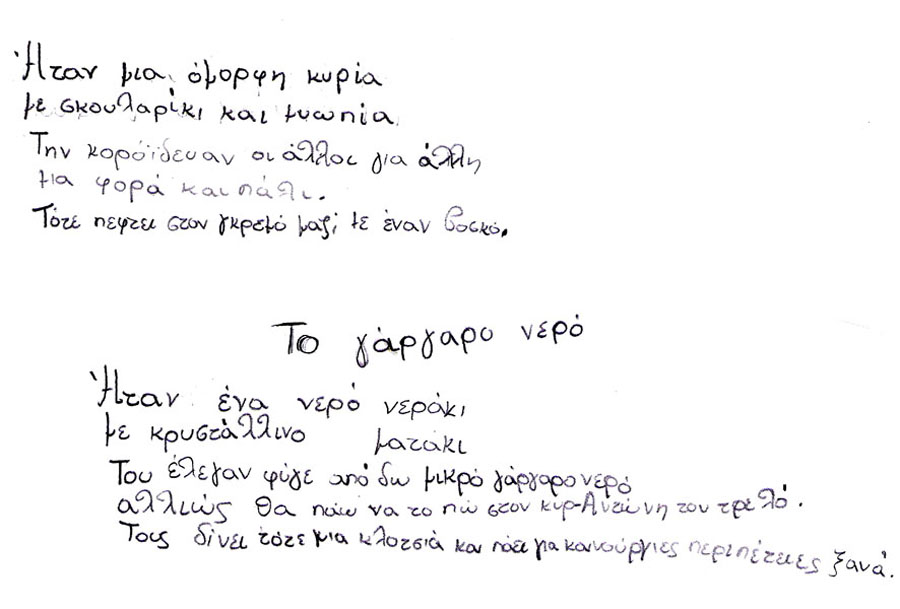 Ήταν μια όμορφη κυρία
με σκουλαρίκι και μυωπία
Την κορόιδευαν οι άλλοι για άλλη
μια φορά και πάλι.
Τότε πεφτει στον γκρεμό μαζί με έναν βοσκό.
Το γάργαρο νερό
Ήταν ένα νερό νεράκι
με κρυστάλλινο ματάκι
Του έλεγαν φύγε από δω μικρό γάργαρο νερό
αλλιώς θα πάω να το πω στον κυρ-Αντώνη τον τρελό.
Τους δίνει τότε μια κλοτσιά και πάει για καινούργιες περιπέτειες ξανά.